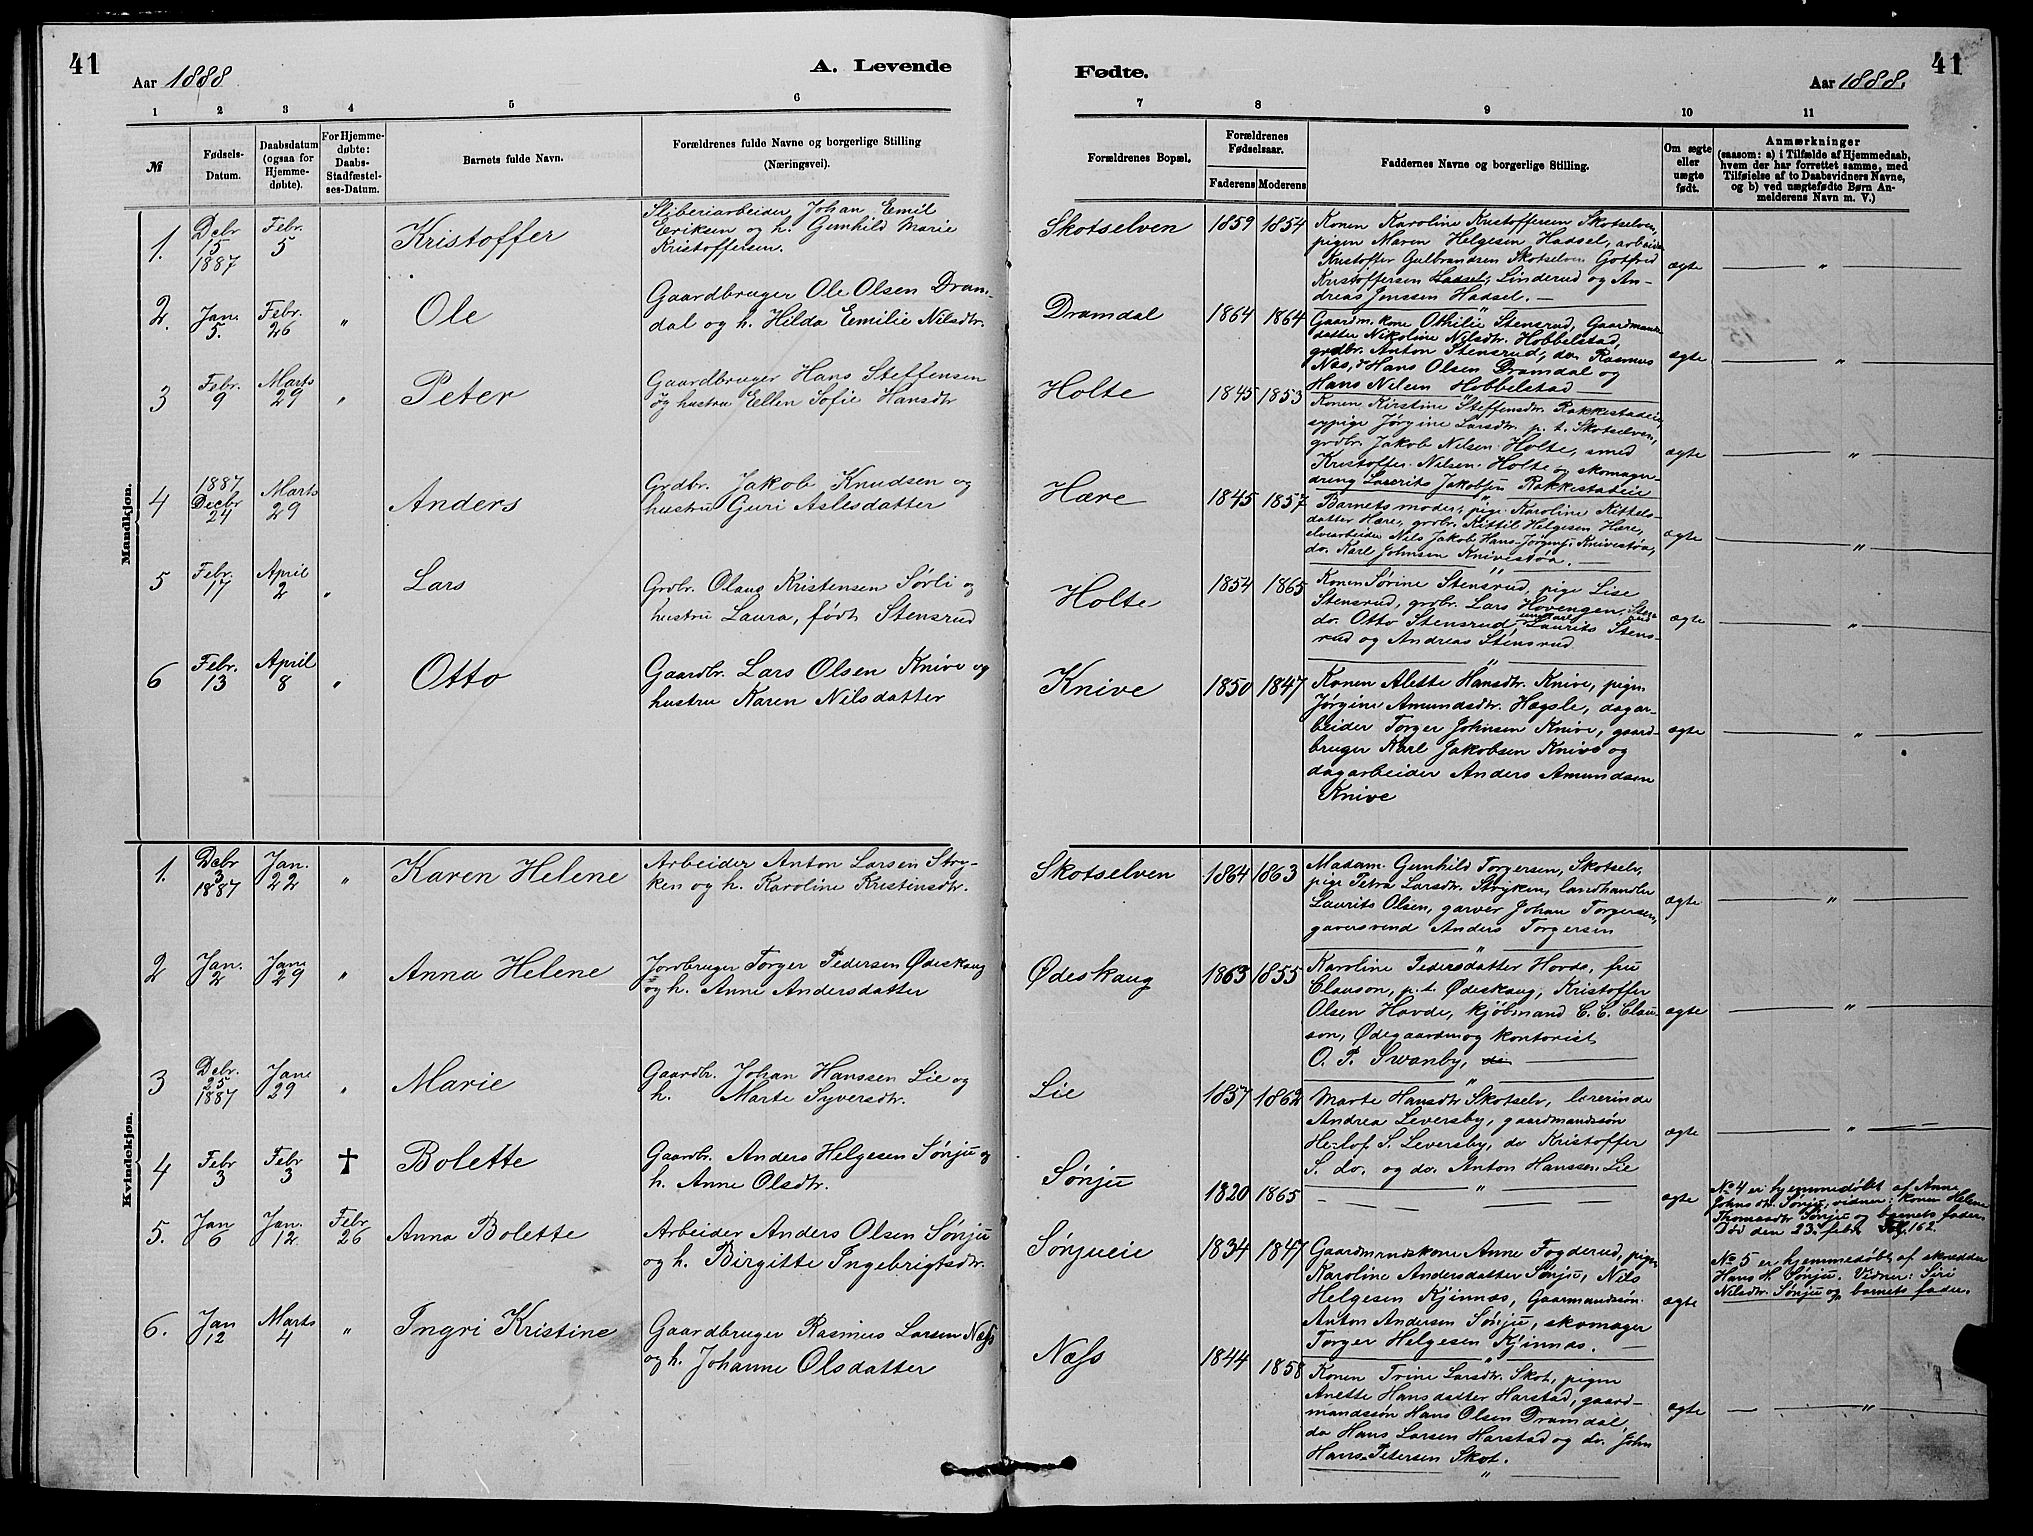 41
Aar 1888
A. Levende
1 2 3 4 5 6
№
Fødsels-Datum.
Daabsdatum (ogsaa for Hjemme-døbte).
For Hjemme-døbte: Daabs-Stadfæstel-ses-Datum.
Barnets fulde Navn.
Forældrenes fulde Navne og borgerlige Stilling
(Næringsvei).
Mandkjøn.
1.
Debr 5 1887
Febr. 5
Kristoffer
Sliberiarbeider Johan Emil
Eriksen og h. Gunhild Marie
Kristoffersen.
2.
Jan. 5.
Febr. 26
"
Ole
Gaardbruger Ole Olsen Dram-
dal og h. Hilda Emilie Nilsdtr.
3
Febr. 9
Marts 29
"
Peter
Gaardbruger Hans Steffensen
og hustru Ellen Sofie Hansdtr
4
1887 Decbr 24
Marts 29
Anders
Grdbr. Jakob Knudsen og
hustru Guri Aslesdatter
5
Febr. 17
April 2
"
Lars
Grdbr. Olaus Kristensen Sørli og
hustru Laura, født Stensrud
6
Febr. 13
April 8
"
Otto
Gaardbr. Lars Olsen Knive og
hustru Karen Nilsdatter
Kvindekjøn.
1.
Debr 3 1887
Jan. 22
"
Karen Helene
Arbeider Anton Larsen Stry-
ken og h. Karoline Kristinsdtr.
2
Jan. 2
Jan. 29
"
Anna Helene
Jordbruger Torger Pedersen Ødeskaug
og h. Anne Andersdatter
3
Debr. 25 1887
Jan 29
"
Marie
Gaardbr. Johan Hanssen Lie og
h. Marte Syversdtr.
4
Febr 3
Febr 3
✝
Bolette
Gaardbr. Anders Helgesen Sønju og
h. Anne Olsdtr.
5.
Jan 6
Jan. 12
Febr 26
Anna Bolette
Arbeider Anders Olsen Sønju
og h. Birgitte Ingebrigtsdtr.
6.
Jan 12
Marts 4
"
Ingri Kristine
Gaardbruger Rasmus Larsen Næss
og h. Johanne Olsdatter
41
Fødte.
Aar 1888.
7 8 9 10 11
Forældrenes Bopæl.
Forældrenes Fødselsaar.
Faderens Moderens
Faddernes Navne og borgerlige Stilling.
Om ægte eller uægte født.
Anmærkninger
(saasom: a) i Tilfælde af Hjemmedaab,
hvem der har forrettet samme, med
Tilføielse af to Daabsvidners Navne,
og b) ved uægtefødte Børn An-
melderens Navn m. V.)
Skotselven
1859 1854
Konen Karoline Kristoffersen Skotselven,
pigen Maren Helgesen Hadsel, arbeider
Kristoffer Gulbrandsen Skotselven Gotfred
Kristoffersen Hadsel, Linderud og An-
dreas Jenssen Hadsel. —
ægte
"
Dramdal
1864 1864
Gaardm.kone Othilie Stensrud, Gaardmands-
datter Nikoline Nilsdtr. Hobbelstad,
grdbr. Anton Stensrud, do. Rasmus
Næs, Hans Olsen Dramdal og
Hans Nilsen Hobbelstad
ægte
"
Holte
1845 1853
Konen Kirstine Steffensdtr. Rakkestadeie,
sypige Jørgine Larsdtr. p. t. Skotselven,
grdbr. Jakob Nilsen Holte, smed
Kristoffer Nilsen Holte og skomager-
dreng Laurits Jakobsen Rakkestadeie
ægte
"
Hære
1845 1857
Barnets moder, pige Karoline Kittels-
datter Hære, grdbr. Kittil Helgesen Hære,
elvearbeider Nils Jakob Hans-Jørgens. Knivestøa,
do. Karl Johnsen Knivestøa. —
ægte
"
Holte
1854 1865
Konen Sørine Stensrud, pige Lise
Stensrud, grdbr. Lars Hovengen,
do. Otto Stensrud, ungkarl Laurits Stens-
rud og Andreas Stensrud
ægte
"
Knive
1850 1847
Konen Alette Hansdtr. Knive, pigen
Jørgine Amundsdtr. Hagsle, dagar-
beider Torger Johnsen Knive, gaard-
bruger Karl Jakobsen Knive og
dagarbeider Anders Amundsen
Knive
ægte
"
Skotselven
1864 1863
Madam. Gunhild Torgersen, Skotselv,
pige Petra Larsdtr. Stryken, landhandler
Laurits Olsen, garver Johan Torgersen,
garversvend Anders Torgersen
ægte
"
Ødeskaug
1863 1855
Karoline Pedersdatter Hovde, fru
Clauson, p.t. Ødeskaug, Kristoffer
Olsen Hovde, kjøbmand C. C. Clau-
son, Ødegaarden og kontorist
O. P. Swanby,
ægte
"
Lie
1857 1862
Marte Hansdtr Skotselv, lærerinde
Andrea Leversby, gaardmandssøn
Helof S. Leversby, do Kristoffer
S. do. og do. Anton Hanssen Lie
ægte
"
Sønju
1820 1865
— — — " — —
ægte
No 4 er hjemmedøbt af Anne
Johnsdtr. Sønju, vidner: konen Helene
Thomasdtr Sønju og barnets fader.
Død den 23. febr. Fol. 162.
Sønjueie
1834 1847
Gaardmandskone Anne Fogderud, pigen
Karoline Andersdatter Sønju, Nils
Helgesen Kjinnas, Gaarmandssøn
Anton Andersen Sønju, skomager
Torger Helgesen Kjinnas. —
ægte
No 5 er hjemmedøbt af skrædder
Hans H. Sønju. Vidner: Siri
Nilsdtr. Sønju og barnets fader.
Næss
1844 1858
Konen Trine Larsdtr. Skot, pigen
Anette Hansdatter Harstad, gaard-
mandssøn Hans Olsen Dramdal,
do Hans Larsen Harstad og do. John
Hans-Petersen Skot.
ægte
"